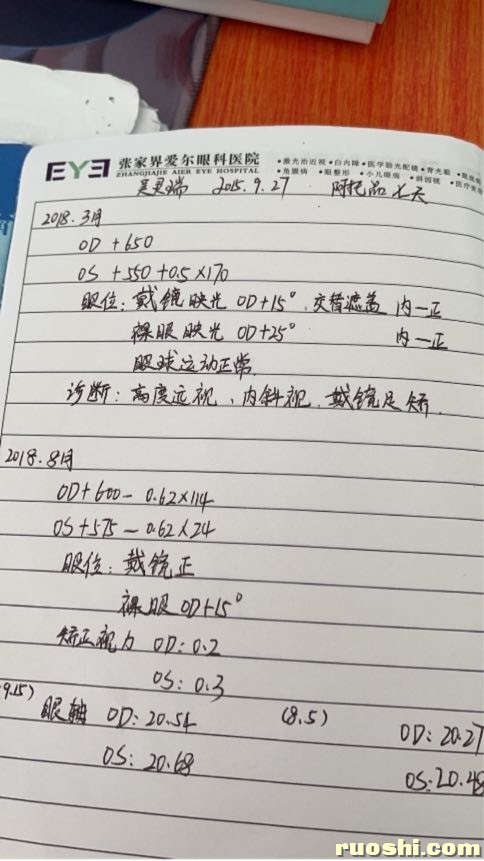 EYE 张家界爱尔眼科医院
ZHANGJIAJIE AIER EYE HOSPITAL
•激光治近视 •白内障 •医学验光配镜 •青光眼
•角膜病 •眼整形 •小儿眼病 •斜弱视 •医疗美
2015.9.27 阿托品七天
2018.3月
OD +650
OS +550 +0.5×170
眼位: 戴镜映光 OD+15° . 交替遮盖 内一正
裸眼映光 OD+25° 内一正
眼球运动正常.
诊断: 高度远视、内斜视. 戴镜足矫.
2018.8月
OD+600 - 0.62×114
OS+575 - 0.62×24
眼位: 戴镜正
裸眼 OD+15°
矫正视力 OD: 0.2
OS: 0.3
9.15) 眼轴 OD: 20.54 (8.5) OD: 20.27
OS: 20.68 OS: 20.48
ruoshi.com